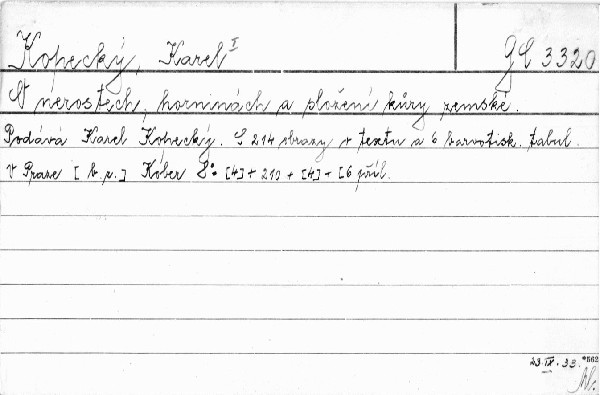 Kopecký, Karel I GC 3320
O nerostech, horninách a složení kůry zemské.
Podává Karel Kopecký. S 214 obrazy v textu a 6 barvotisk. tabul.
V Praze [b.r.] Kober 8° [4] + 210 + [4] + [6 příl.
23.IX.33. *562